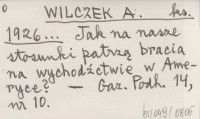 WILCZEK A. ks.
1926... Jak na nasze
stosunki patrzą bracia
na wychodźctwie w Ame-
ryce? — Gaz. Podh. 14,
nr 10.